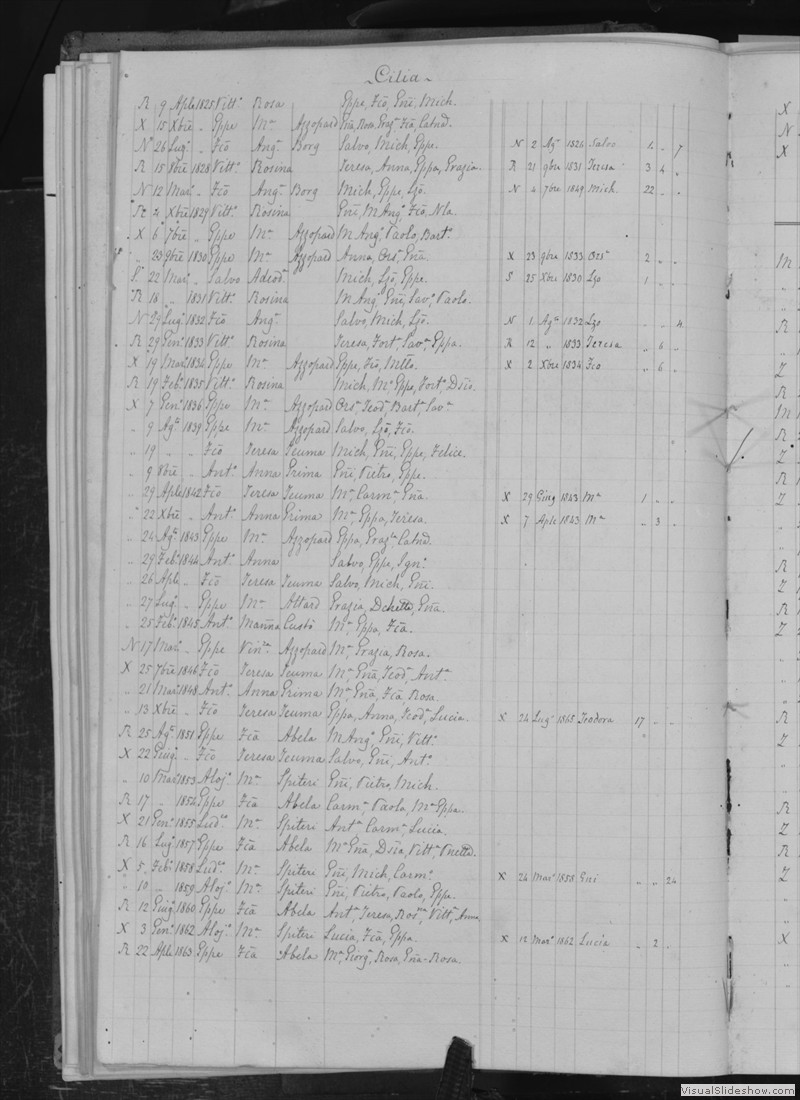 Cilia
R 9 Aple 1825 Vitt.ª Rosa Eppe, Fcõ, Eñi, Mich.
X 15 Xbrẽ „ Eppe M.ª Azzopard Eña, Rosa, Graz.ª Fcã, Catnd.
N 26 Lug.º „ Fcõ Ang.ª Borg Salvo, Mich, Eppe. N 2 Ag.º 1826 Salvo 1 „ 7
R 15 8brẽ 1828 Vitt.º Rosina Teresa, Anna, Eppa, Grazia. R 21 9bre 1831 Teresa 3 4 „
N 12 Mar.º „ Fcõ Ang.ª Borg Mich, Eppe, Lzõ. N 7bre 1849 Mich. 22 „ „
R 2 Xbrẽ 1829 Vitt.º Rosina Eñi, M Ang.º Fcõ, Nla.
X 6 7brẽ „ Eppe M.ª Azzopard M Ang.º Paolo, Bart.º
„ 23 9brẽ 1830 Eppe M.ª Azzopard Anna, Ors.ª Eña. X 23 9bre 1833 Ors.ª 2 „ „
S. 22 Mar.º „ Salvo Adeod.ª Mich, Lzõ, Eppe. S 25 Xbre 1830 Lzo 1 „ „
R 18 „ 1831 Vitt.º Rosina M Ang.º Eñi, Sav.º Paolo.
N 29 Lug.º 1832 Fcõ Ang.ª Salvo, Mich, Lzõ. N 1 Ag.º 1832 Lzo „ „ 4
R 29 Gen.º 1833 Vitt.º Rosina Teresa, Fort.ª Sav.ª Eppa. R 12 „ 1833 Teresa „ 6 „
X 19 Mar.º 1834 Eppe M.ª Azzopard Eppe, Fcõ, Mttõ. X 2 Xbre 1834 Fco „ 6 „
R 19 Feb.º 1835 Vitt.º Rosina Mich, M.ª Eppe, Fort.º Dñõ.
X 7 Gen.º 1836 Eppe M.ª Azzopard Ors.ª Teod.ª Bart.ª Sav.ª
„ 9 Ag.º 1839 Eppe M.ª Azzopard Salvo, Lzõ, Fcõ.
„ 19 „ „ Fcõ Teresa Teuma Mich, Eñi, Eppe, Felice.
„ 9 8brẽ „ Ant.º Anna Grima Eñi, Pietro, Eppe.
„ 29 Aple 1842 Fcõ Teresa Teuma M.ª Carm.ª Eña X 29 Giug 1843 M.ª 1 „ „
„ 22 Xbrẽ „ Ant.º Anna Grima M.ª Eppa, Teresa. X 7 Aple 1843 M.ª „ 3 „
„ 24 Ag.º 1843 Eppe M.ª Azzopard Eppa, Graz.ª Catnd.
„ 29 Feb.º 1844 Ant.º Anna Salvo, Eppe, Ign.º
„ 26 Aple „ Fcõ Teresa Teuma Salvo, Mich, Eñi.
„ 27 Lug.º „ Eppe M.ª Attard Grazia, Dchetta, Eña.
„ 25 Feb.º 1845 Ant.º Marina Cusbò M.ª Eppa, Fcã.
N 17 Mar.º „ Eppe Vin.ª Azzopard M.ª Grazia, Rosa.
X 25 7brẽ 1846 Fcõ Teresa Teuma M.ª Eña, Teod.ª Ant.ª
„ 21 Mar.º 1848 Ant.º Anna Grima M.ª Eña, Fcã, Rosa.
„ 13 Xbrẽ „ Fcõ Teresa Teuma Eppa, Anna, Teod.ª Lucia. X 24 Lug.º 1865 Teodora 17 „ „
R 25 Ag.º 1851 Eppe Fcã Abela M Ang.º Eñi, Vitt.º
X 22 Giug.º „ Fcõ Teresa Teuma Salvo, Eñi, Ant.º
„ 10 Mar.º 1853 Aloj.º M.ª Spiteri Eñi, Pietro, Mich.
R 17 „ 1854 Eppe Fcã Abela Carm.ª Paola, M.ª Eppa.
X 21 Gen.º 1855 Lud.co M.ª Spiteri Ant.ª Carm.ª Lucia.
R 16 Lug.º 1857 Eppe Fcã Abela M.ª Eña, Dña, Vitt.ª
X 5 Feb.º 1858 Lud.co M.ª Spiteri Eñi, Mich, Carm.º X 24 Mar.º 1858 Eni „ „ 24
„ 10 „ 1859 Aloj.º M.ª Spiteri Eñi, Pietro, Paolo, Eppe.
R 12 Giug.º 1860 Eppe Fcã Abela Ant.ª Teresa, Ros.na Vitt.ª Anna.
X 3 Gen.º 1862 Aloj.º M.ª Spiteri Lucia, Fcã, Eppa. X 12 Mar.º 1862 Lucia „ 2 „
R 22 Aple 1863 Eppe Fcã Abela M.ª Giorg.ª Rosa, Eña-Rosa.
VisualSlideshow.com